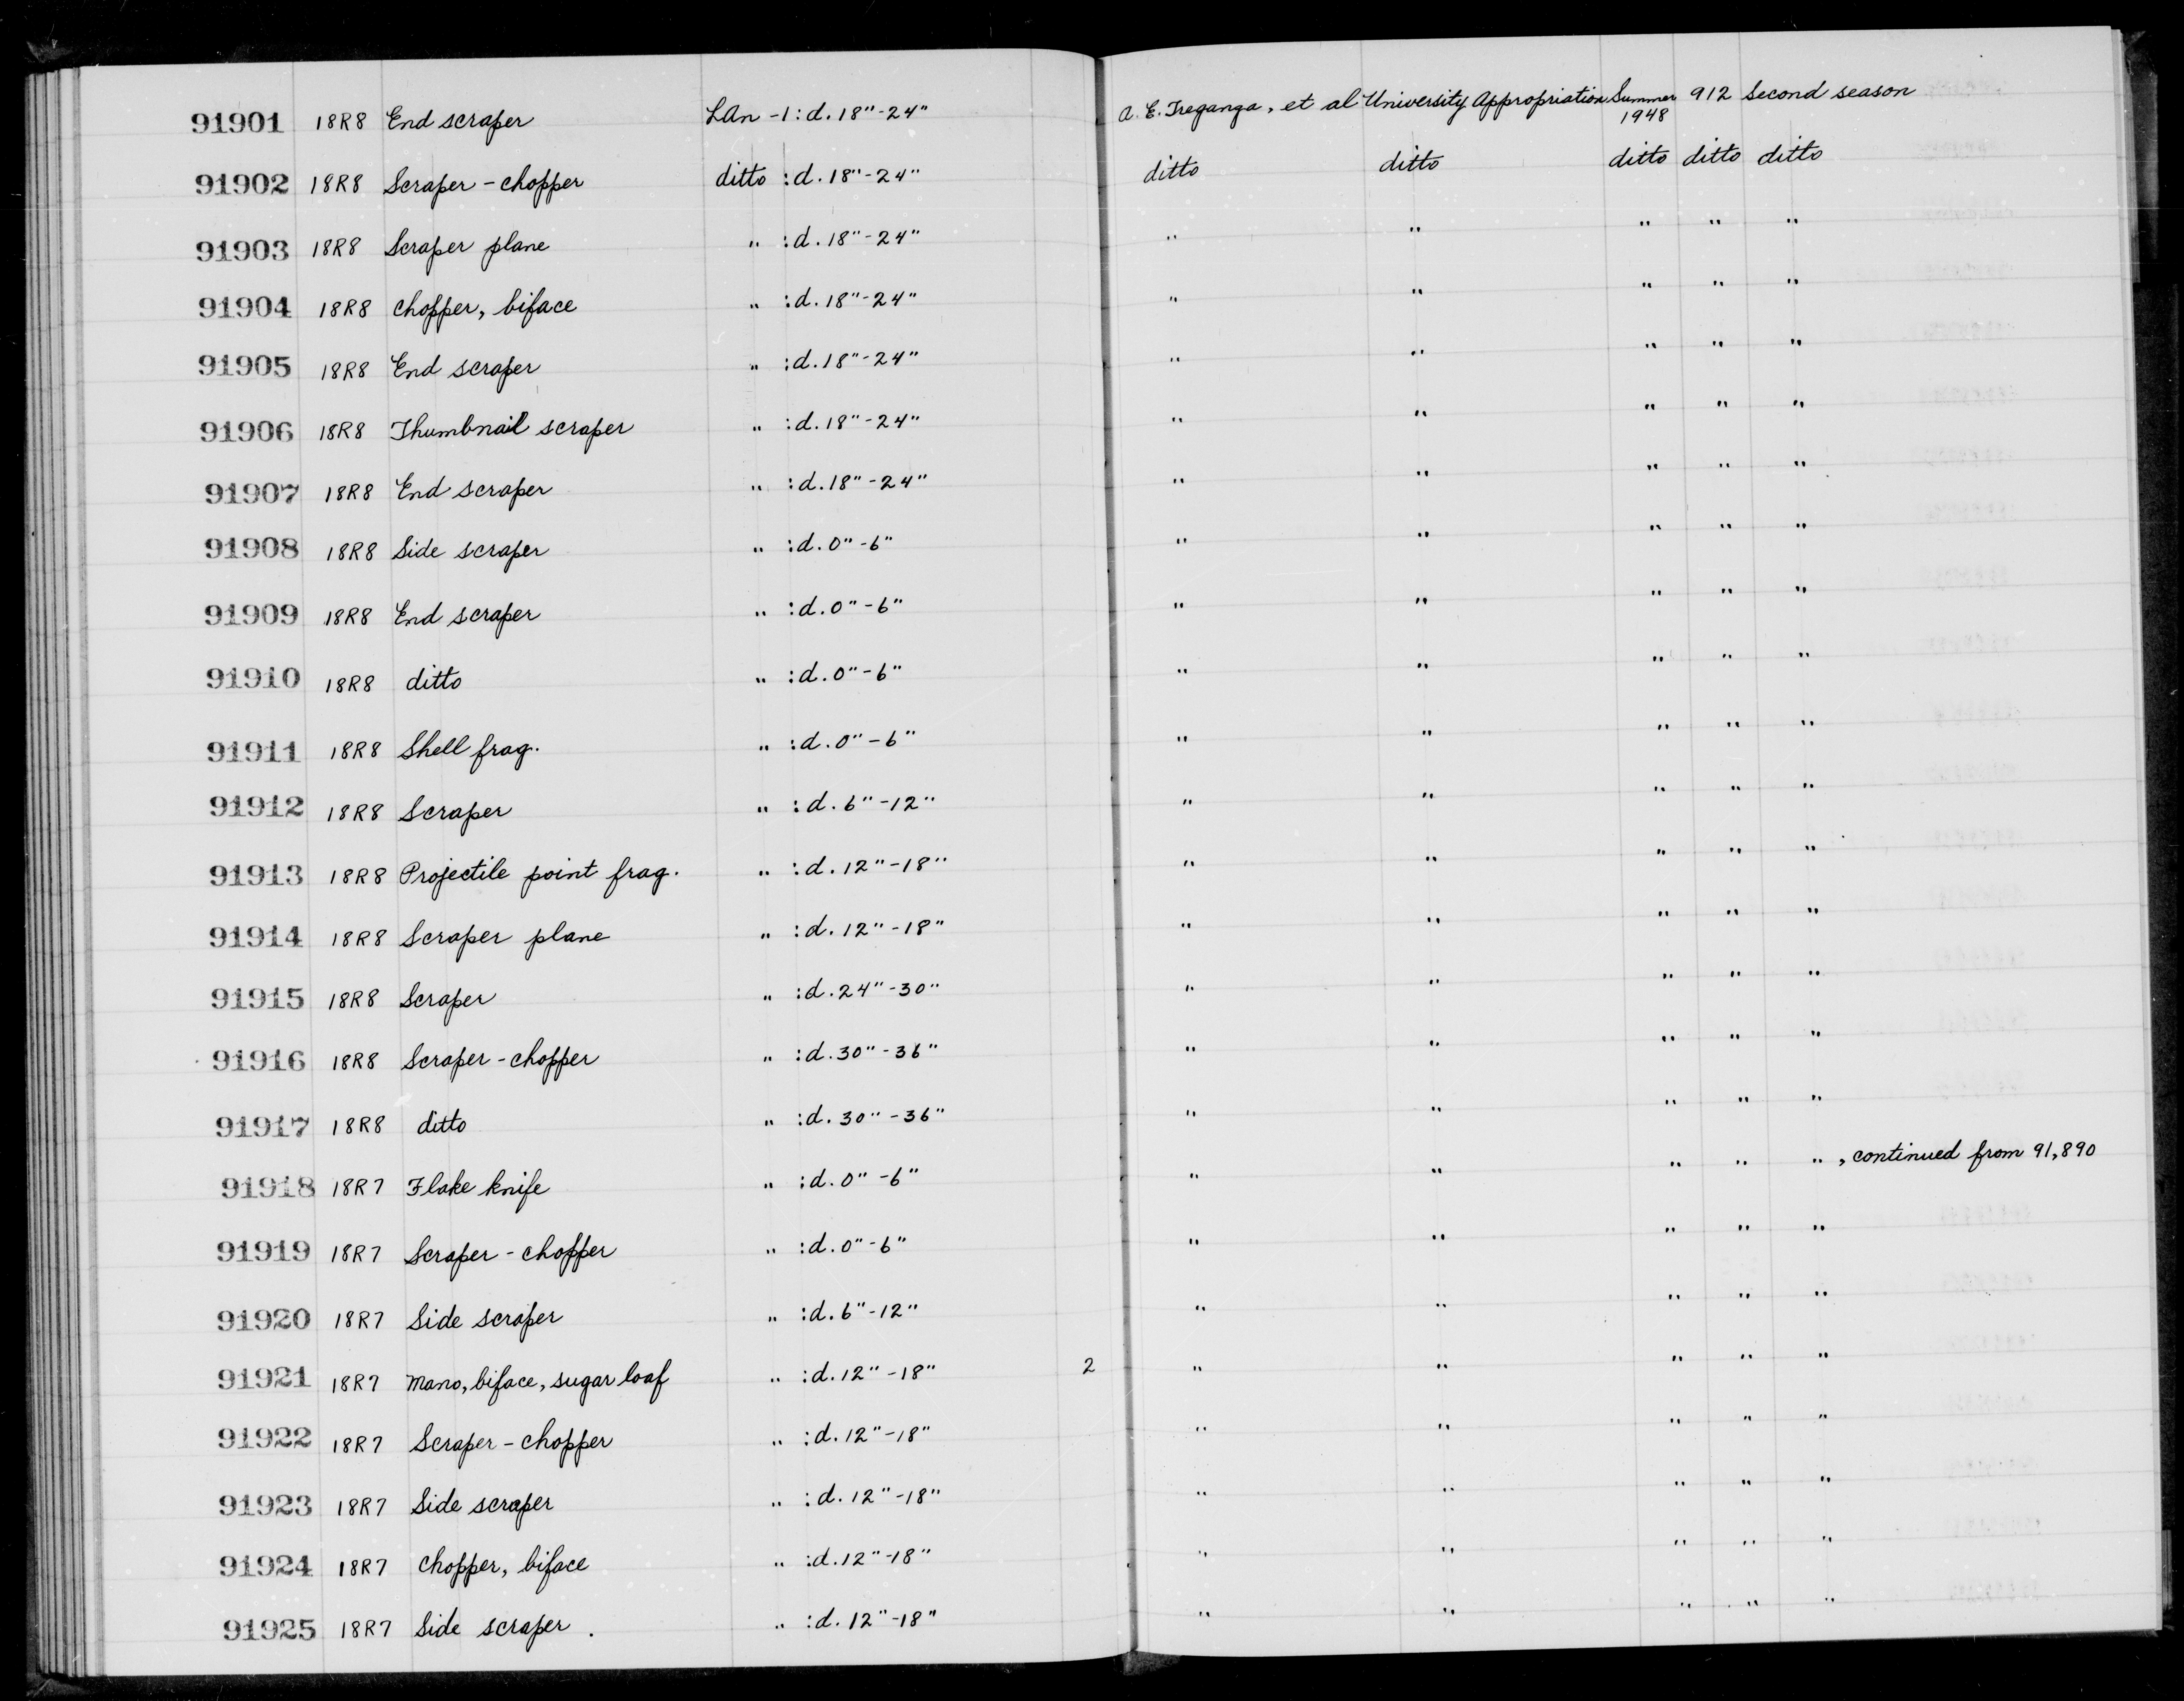 91901 18R8 End scraper LAn -1: d. 18"-24" A. E. Treganza, et al University Appropriation Summer 1948 912 Second season
91902 18R8 Scraper - chopper ditto : d. 18"-24" ditto ditto ditto ditto ditto
91903 18R8 Scraper plane " : d. 18"-24" " " " " "
91904 18R8 Chopper, biface " : d. 18"-24" " " " " "
91905 18R8 End scraper " : d. 18"-24" " " " " "
91906 18R8 Thumbnail scraper " : d. 18"-24" " " " " "
91907 18R8 End scraper " : d. 18"-24" " " " " "
91908 18R8 Side scraper " : d. 0"-6" " " " " "
91909 18R8 End scraper " : d. 0"-6" " " " " "
91910 18R8 ditto " : d. 0"-6" " " " " "
91911 18R8 Shell frag. " : d. 0"-6" " " " " "
91912 18R8 Scraper " : d. 6"-12" " " " " "
91913 18R8 Projectile point frag. " : d. 12"-18" " " " " "
91914 18R8 Scraper plane " : d. 12"-18" " " " " "
91915 18R8 Scraper " : d. 24"-30" " " " " "
91916 18R8 Scraper - chopper " : d. 30"-36" " " " " "
91917 18R8 ditto " : d. 30"-36" " " " " "
91918 18R7 Flake knife " : d. 0"-6" " " " " " , continued from 91,890
91919 18R7 Scraper - chopper " : d. 0"-6" " " " " "
91920 18R7 Side scraper " : d. 6"-12" " " " " "
91921 18R7 Mano, biface, sugar loaf " : d. 12"-18" 2 " " " " "
91922 18R7 Scraper - chopper " : d. 12"-18" " " " " "
91923 18R7 Side scraper " : d. 12"-18" " " " " "
91924 18R7 Chopper, biface " : d. 12"-18" " " " " "
91925 18R7 Side scraper . " : d. 12"-18" " " " " "